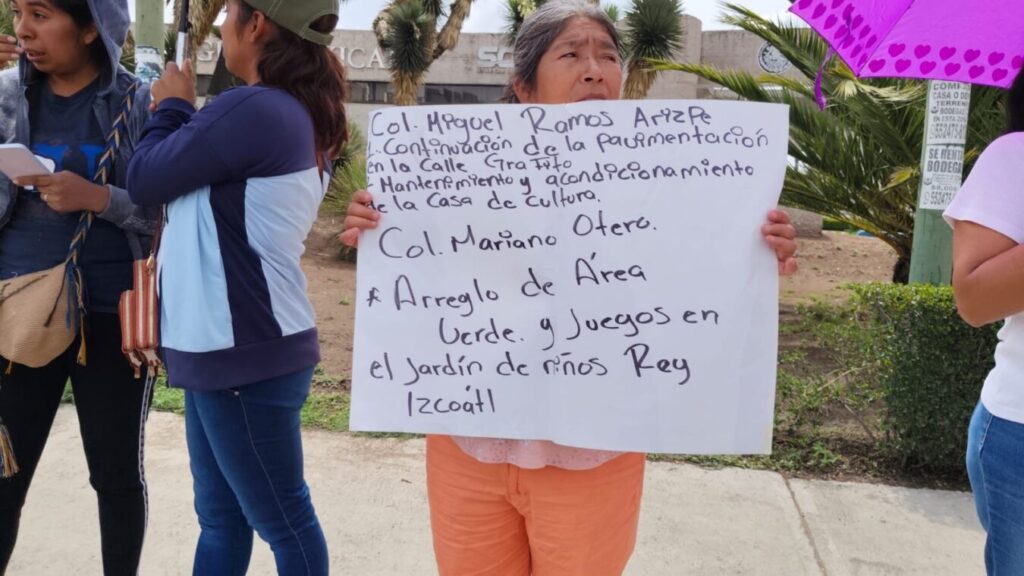 Col. Miguel Ramos Arizpe
-Continuación de la pavimentación
en la Calle Grafito
- Mantenimiento y acondicionamiento
de la Casa de Cultura.
Col. Mariano Otero.
* Arreglo de Área
Verde. y Juegos en
el Jardín de niños Rey
Izcoátl
ICA
SC
TERRENO
BODEGA
EN ESTA ZONA
SE RENTA
BODEGA